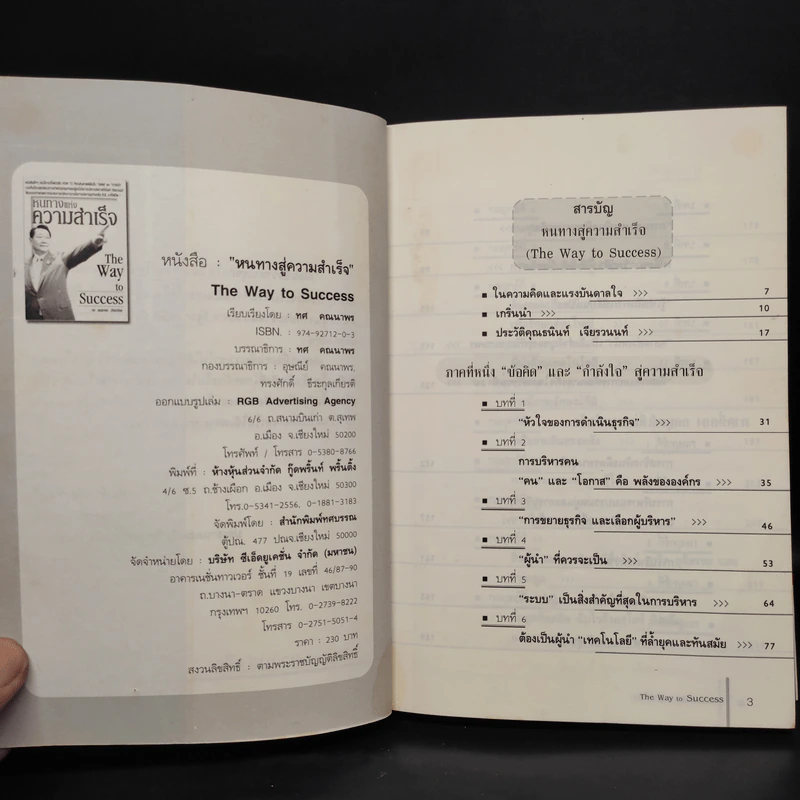 หนทางแห่ง
ความสำเร็จ
The
Way
to
Success
หนังสือ : "หนทางสู่ความสำเร็จ"
The Way to Success
เรียบเรียงโดย : ทศ คณนาพร
ISBN. : 974-92712-0-3
บรรณาธิการ : ทศ คณนาพร
กองบรรณาธิการ : อุษณีย์ คณนาพร,
ทรงศักดิ์ ธีระกุลเกียรติ
ออกแบบรูปเล่ม : RGB Advertising Agency
6/6 ถ.สนามบินเก่า ต.สุเทพ
อ.เมือง จ.เชียงใหม่ 50200
โทรศัพท์ / โทรสาร 0-5380-8766
พิมพ์ที่ : ห้างหุ้นส่วนจำกัด กู๊ดพริ้นท์ พริ้นติ้ง
4/6 ซ.5 ถ.ช้างเผือก อ.เมือง จ.เชียงใหม่ 50300
โทร.0-5341-2556, 0-1881-3183
จัดพิมพ์โดย : สำนักพิมพ์ทศบรรณ
ตู้ปณ. 477 ปณจ.เชียงใหม่ 50000
จัดจำหน่ายโดย : บริษัท ซีเอ็ดยูเคชั่น จำกัด (มหาชน)
อาคารเนชั่นทาวเวอร์ ชั้นที่ 19 เลขที่ 46/87-90
ถ.บางนา-ตราด แขวงบางนา เขตบางนา
กรุงเทพฯ 10260 โทร. 0-2739-8222
โทรสาร 0-2751-5051-4
ราคา : 230 บาท
สงวนลิขสิทธิ์ : ตามพระราชบัญญัติลิขสิทธิ์
สารบัญ
หนทางสู่ความสำเร็จ
(The Way to Success)
■ ในความคิดและแรงบันดาลใจ >>> 7
■ เกริ่นนำ >>> 10
■ ประวัติคุณธนินท์ เจียรวนนท์ >>> 17
ภาคที่หนึ่ง "ข้อคิด" และ "กำลังใจ" สู่ความสำเร็จ
■ บทที่ 1
"หัวใจของการดำเนินธุรกิจ" >>> 31
■ บทที่ 2
การบริหารคน
"คน" และ "โอกาส" คือ พลังขององค์กร >>> 35
■ บทที่ 3
"การขยายธุรกิจ และเลือกผู้บริหาร" >>> 46
■ บทที่ 4
"ผู้นำ" ที่ควรจะเป็น >>> 53
■ บทที่ 5
"ระบบ" เป็นสิ่งสำคัญที่สุดในการบริหาร >>> 64
■ บทที่ 6
ต้องเป็นผู้นำ "เทคโนโลยี" ที่ล้ำยุคและทันสมัย >>> 77
The Way to Success 3